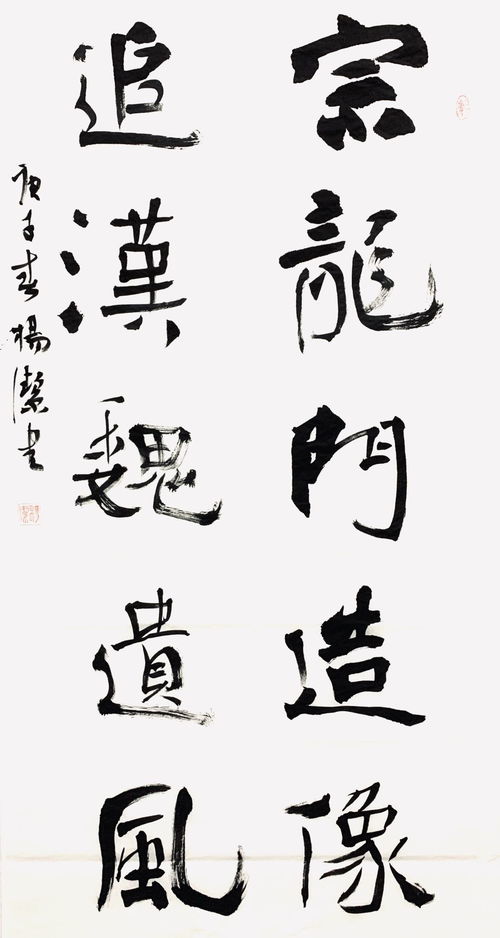 宗龍門造像
追漢魏遺風
庚子春楊潔書